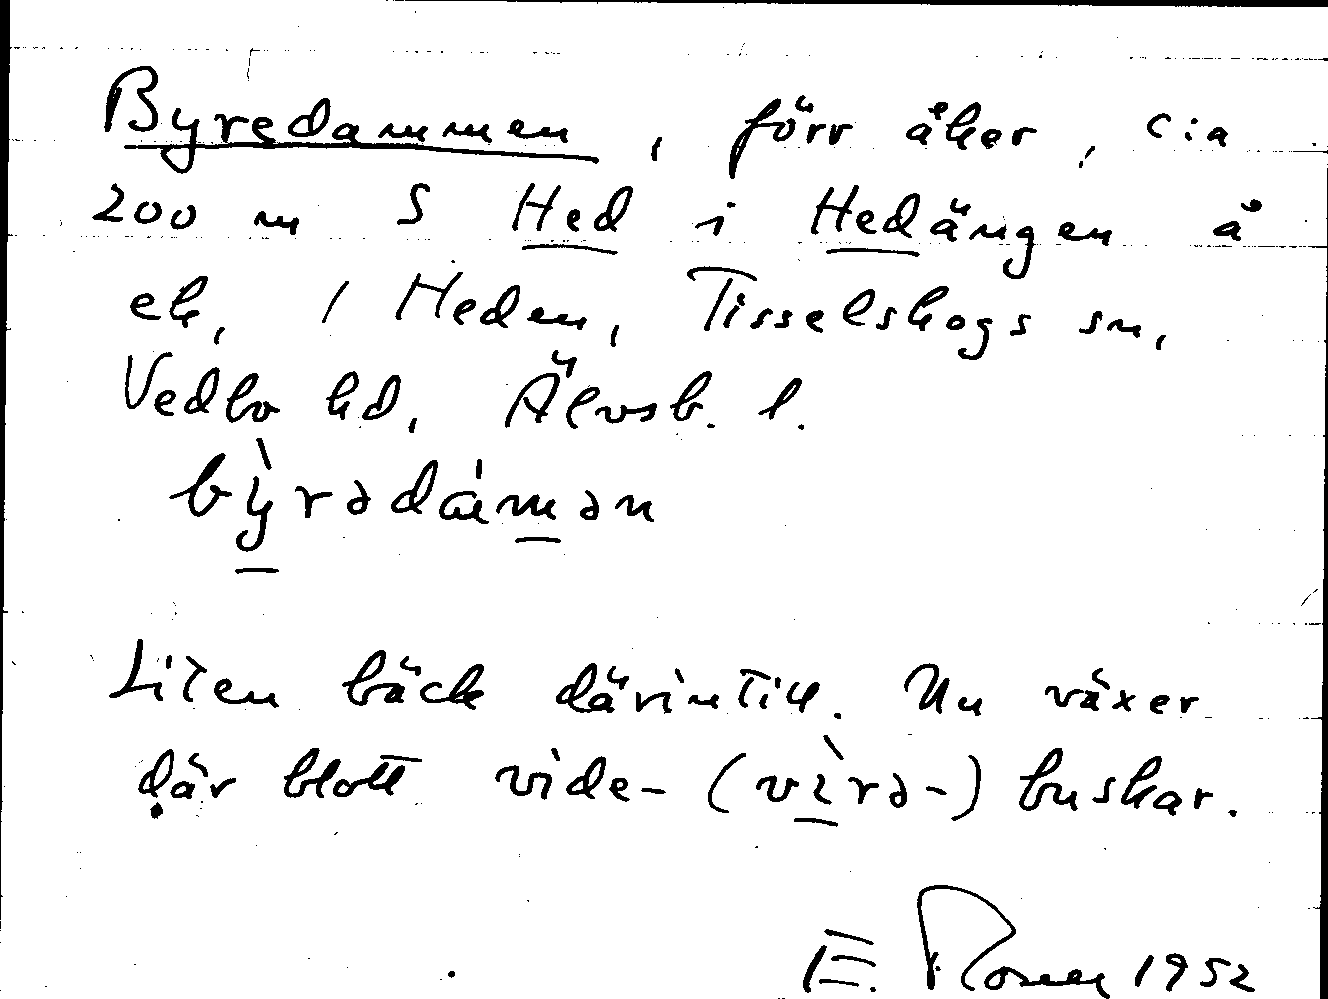 Byredammen, förr åker, c:a
200 m S Hed i Hedängen å
ek. 1 Heden, Tisselskogs sn,
Vedbo hd, Älvsb. l.
bỳrədámən
Liten bäck därintill. Nu växer
där blott vide- (vìrə-) buskar.
E. Rosell 1952